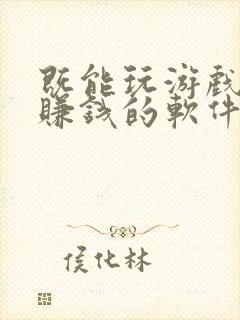 既能玩游戲
賺錢的軟件
侯化林